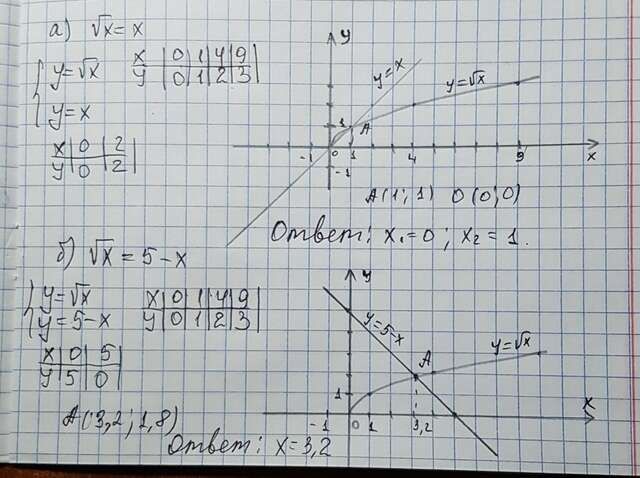 а) √x = x
{ y = √x
{ y = x
x | 0 | 1 | 4 | 9 |
y | 0 | 1 | 2 | 3 |
x | 0 | 2 |
y | 0 | 2 |
y
y = x
y = √x
1
A
-1 0 1 4 9 x
-1
A(1; 1) O(0; 0)
Ответ: x₁ = 0; x₂ = 1.
б) √x = 5 - x
{ y = √x
{ y = 5 - x
x | 0 | 1 | 4 | 9 |
y | 0 | 1 | 2 | 3 |
x | 0 | 5 |
y | 5 | 0 |
y
y = 5 - x
A
y = √x
1
x
-1 0 1 3,2
A(3,2; 1,8)
Ответ: x = 3,2